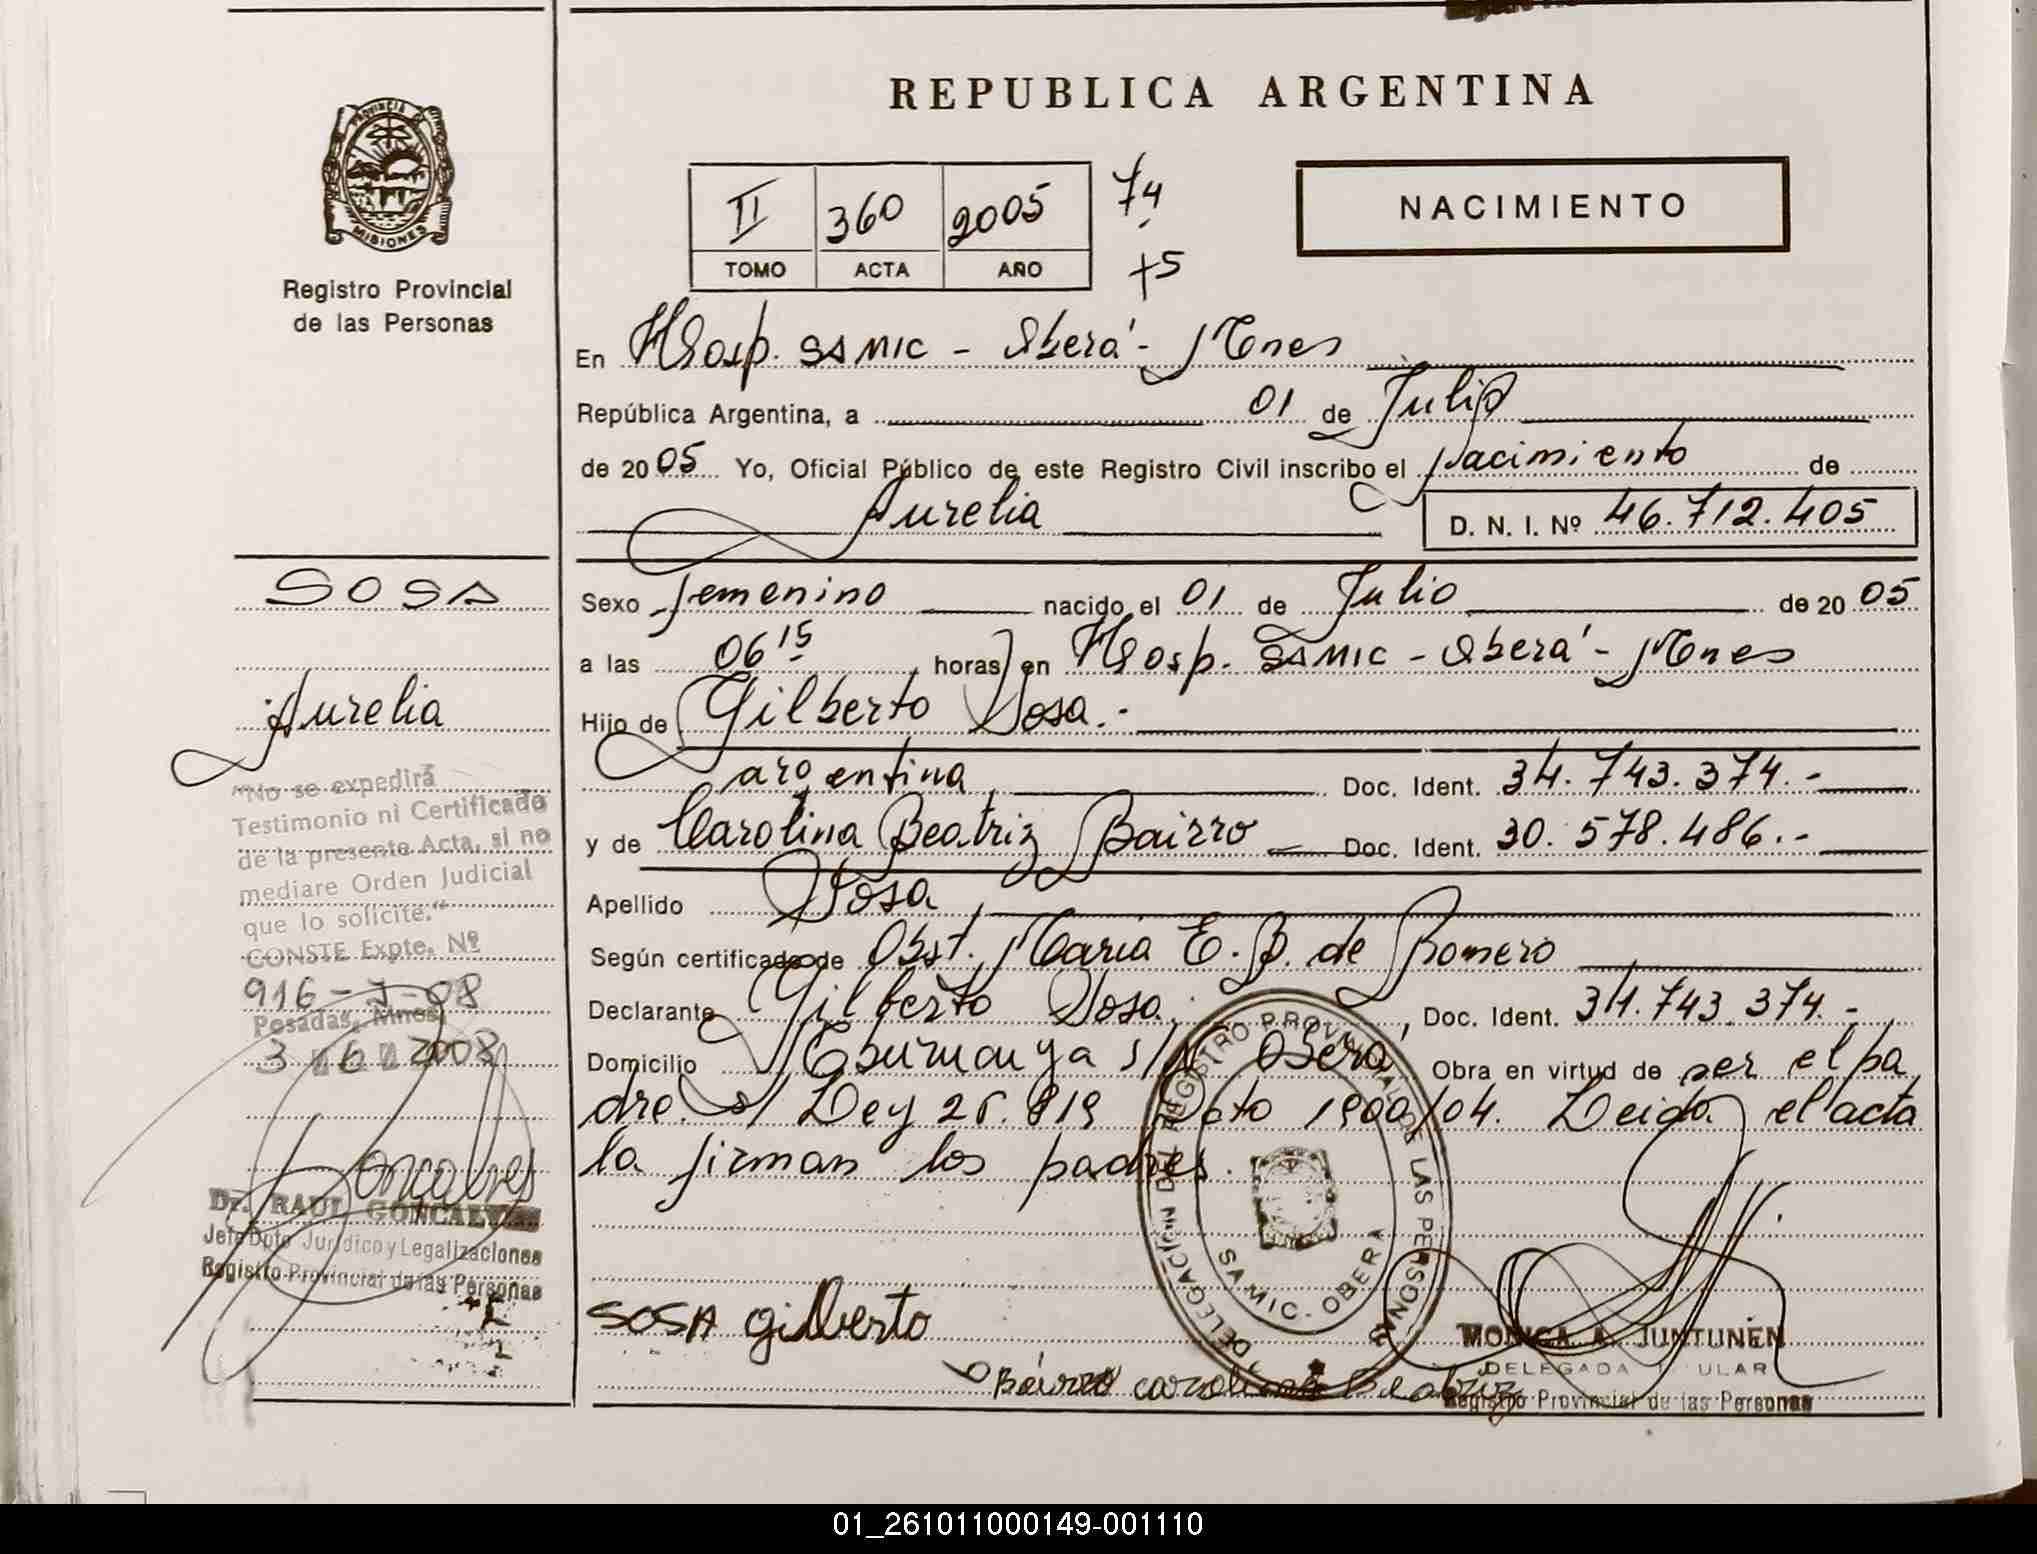 REPUBLICA ARGENTINA
PROVINCIA DE
MISIONES
Registro Provincial
de las Personas
II 360 2005 74
TOMO ACTA AÑO +5
NACIMIENTO
En Hosp. SAMIC - Oberá - Mnes
República Argentina, a 01 de Julio
de 2005 Yo, Oficial Público de este Registro Civil inscribo el Nacimiento de
Aurelia D. N. I. Nº 46.712.405
SOSA
Aurelia
"No se expedirá
Testimonio ni Certificado
de la presente Acta, si no
mediare Orden Judicial
que lo solicite."
CONSTE Expte. Nº
916-J-08
Posadas, Mnes
3 6 2008
Goncalves
Dr. RAUL GONCALVES
Jefe Dpto Jurídico y Legalizaciones
Registro Provincial de las Personas
Sexo femenino nacido el 01 de Julio de 2005
a las 06 15 horas en Hosp. SAMIC - Oberá - Mnes
Hijo de Gilberto Sosa.-
argentina Doc. Ident. 34.743.374.-
y de Carolina Beatriz Bairro Doc. Ident. 30.578.486.-
Apellido Sosa
Según certificado de Obst. Maria E. B. de Romero
Declarante Gilberto Sosa Doc. Ident. 34.743.374.-
Domicilio s/n Oberá Obra en virtud de ser el pa
dre. s/ Ley 26.819 Dcto 1900/04. Leida el acta
la firman los padres.
DELEGACION DEL REGISTRO PROVINCIAL DE LAS PERSONAS
SAMIC. OBERA
SOSA Gilberto
Bairro carolina Beatriz
MONICA A. JUNTUNEN
DELEGADA TITULAR
Registro Provincial de las Personas
01_261011000149-001110